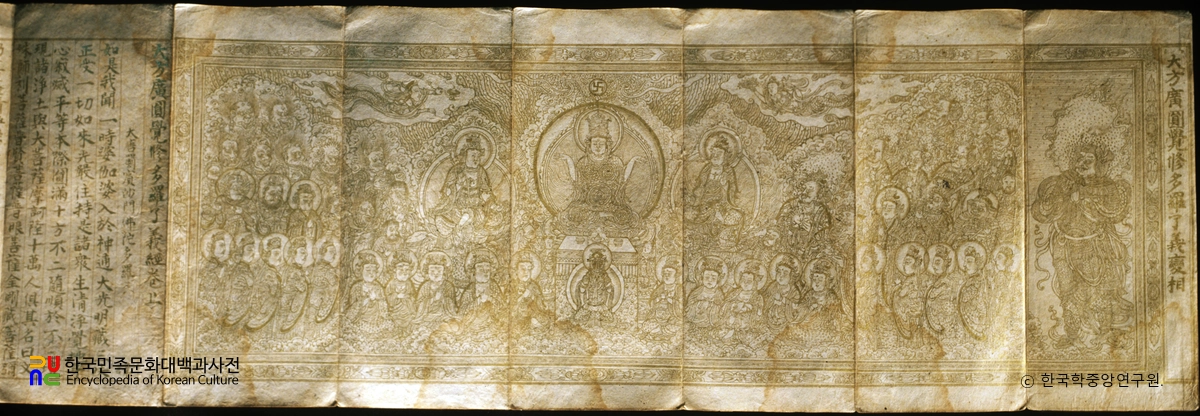 大方廣圓覺修多羅了義變相
大方廣圓覺修多羅了義經卷上
大唐罽賓沙門佛陁多羅
如是我聞一時婆伽婆入於神通大光明藏
正受一切如來光嚴住持是諸衆生清淨覺
心寂滅平等本際圓滿十方不二隨順於不
現諸淨土與大菩薩摩訶薩十萬人俱其名曰文
殊師利菩薩普賢菩薩普眼菩薩金剛藏菩薩
한국민족문화대백과사전
Encyclopedia of Korean Culture
ⓒ 한국학중앙연구원.